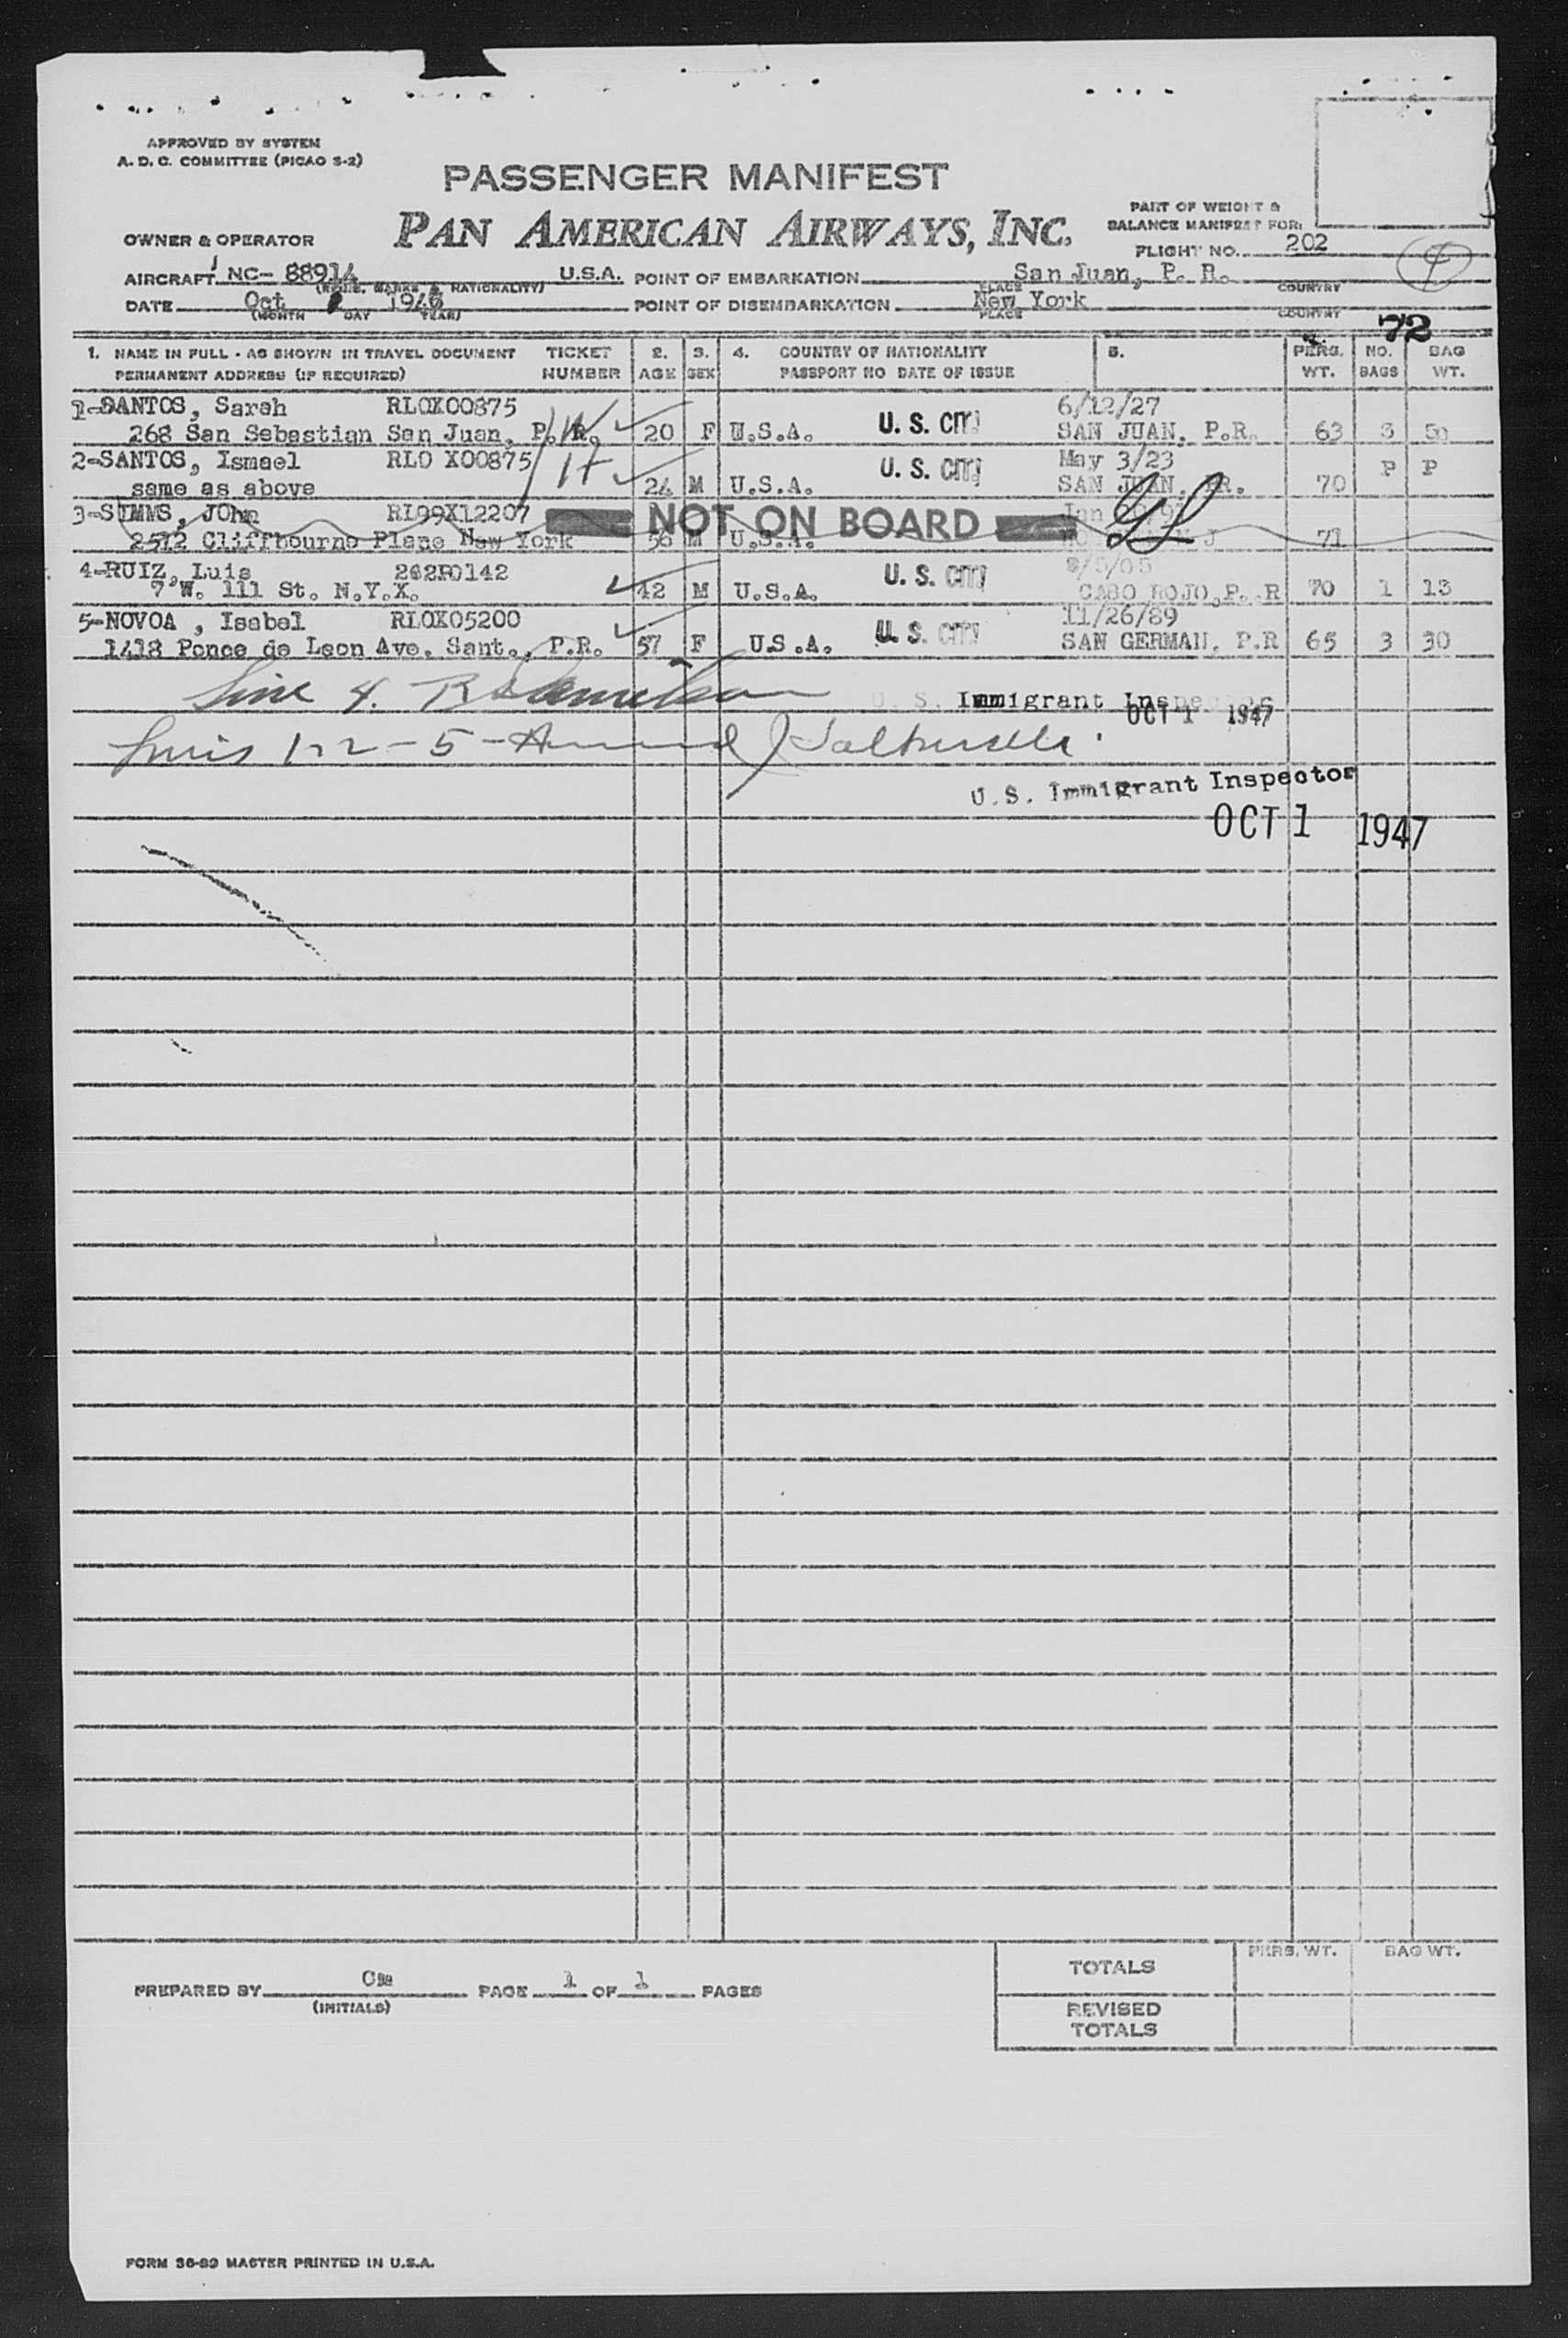 APPROVED BY SYSTEM
A. D. C. COMMITTEE (PICAO S-2)
PASSENGER MANIFEST
PAN AMERICAN AIRWAYS, INC.
PART OF WEIGHT &
BALANCE MANIFEST FOR:
OWNER & OPERATOR
FLIGHT NO. 202
AIRCRAFT NC- 88914 U.S.A. POINT OF EMBARKATION San Juan, P. R.
(REGIS. MARKS & NATIONALITY) PLACE COUNTRY
DATE Oct POINT OF DISEMBARKATION New York
(MONTH DAY YEAR) PLACE COUNTRY
72
1. NAME IN FULL - AS SHOWN IN TRAVEL DOCUMENT TICKET 2. 3. 4. COUNTRY OF NATIONALITY 5. PERS. NO. BAG
PERMANENT ADDRESS (IF REQUIRED) NUMBER AGE SEX PASSPORT NO DATE OF ISSUE WT. BAGS WT.
1-SANTOS, Sarah RLOX00875 6/12/27
268 San Sebastian San Juan, P. R. 20 F U.S.A. U. S. CIT SAN JUAN, P.R. 63 3 50
2-SANTOS, Ismael RLO X00875 U. S. CIT May 3/23 P P
same as above 24 M U.S.A. SAN JUAN, PR. 70
3-SIMMS, JOhn RL99X12207 NOT ON BOARD Jan
2512 Cliffbourne Place New York 56 M U.S.A. 71
4-RUIZ, Luis 262R0142 U. S. CIT /5/05
7 W. 111 St. N.Y.X. 42 M U.S.A. CABO ROJO,P. R 70 1 13
5-NOVOA , Isabel RLOX05200 U. S. CIT 11/26/89
1418 Ponce de Leon Ave. Sant., P.R. 57 F U.S.A. SAN GERMAN, P.R 65 3 30
Line 4.
U. S. Immigrant Inspector
OCT 1 1947
1-2-5-
U.S. Immigrant Inspector
OCT 1 1947
PREPARED BY PAGE 1 OF 1 PAGES
(INITIALS)
PERS. WT. BAG WT.
TOTALS
REVISED
TOTALS
FORM 36-89 MASTER PRINTED IN U.S.A.